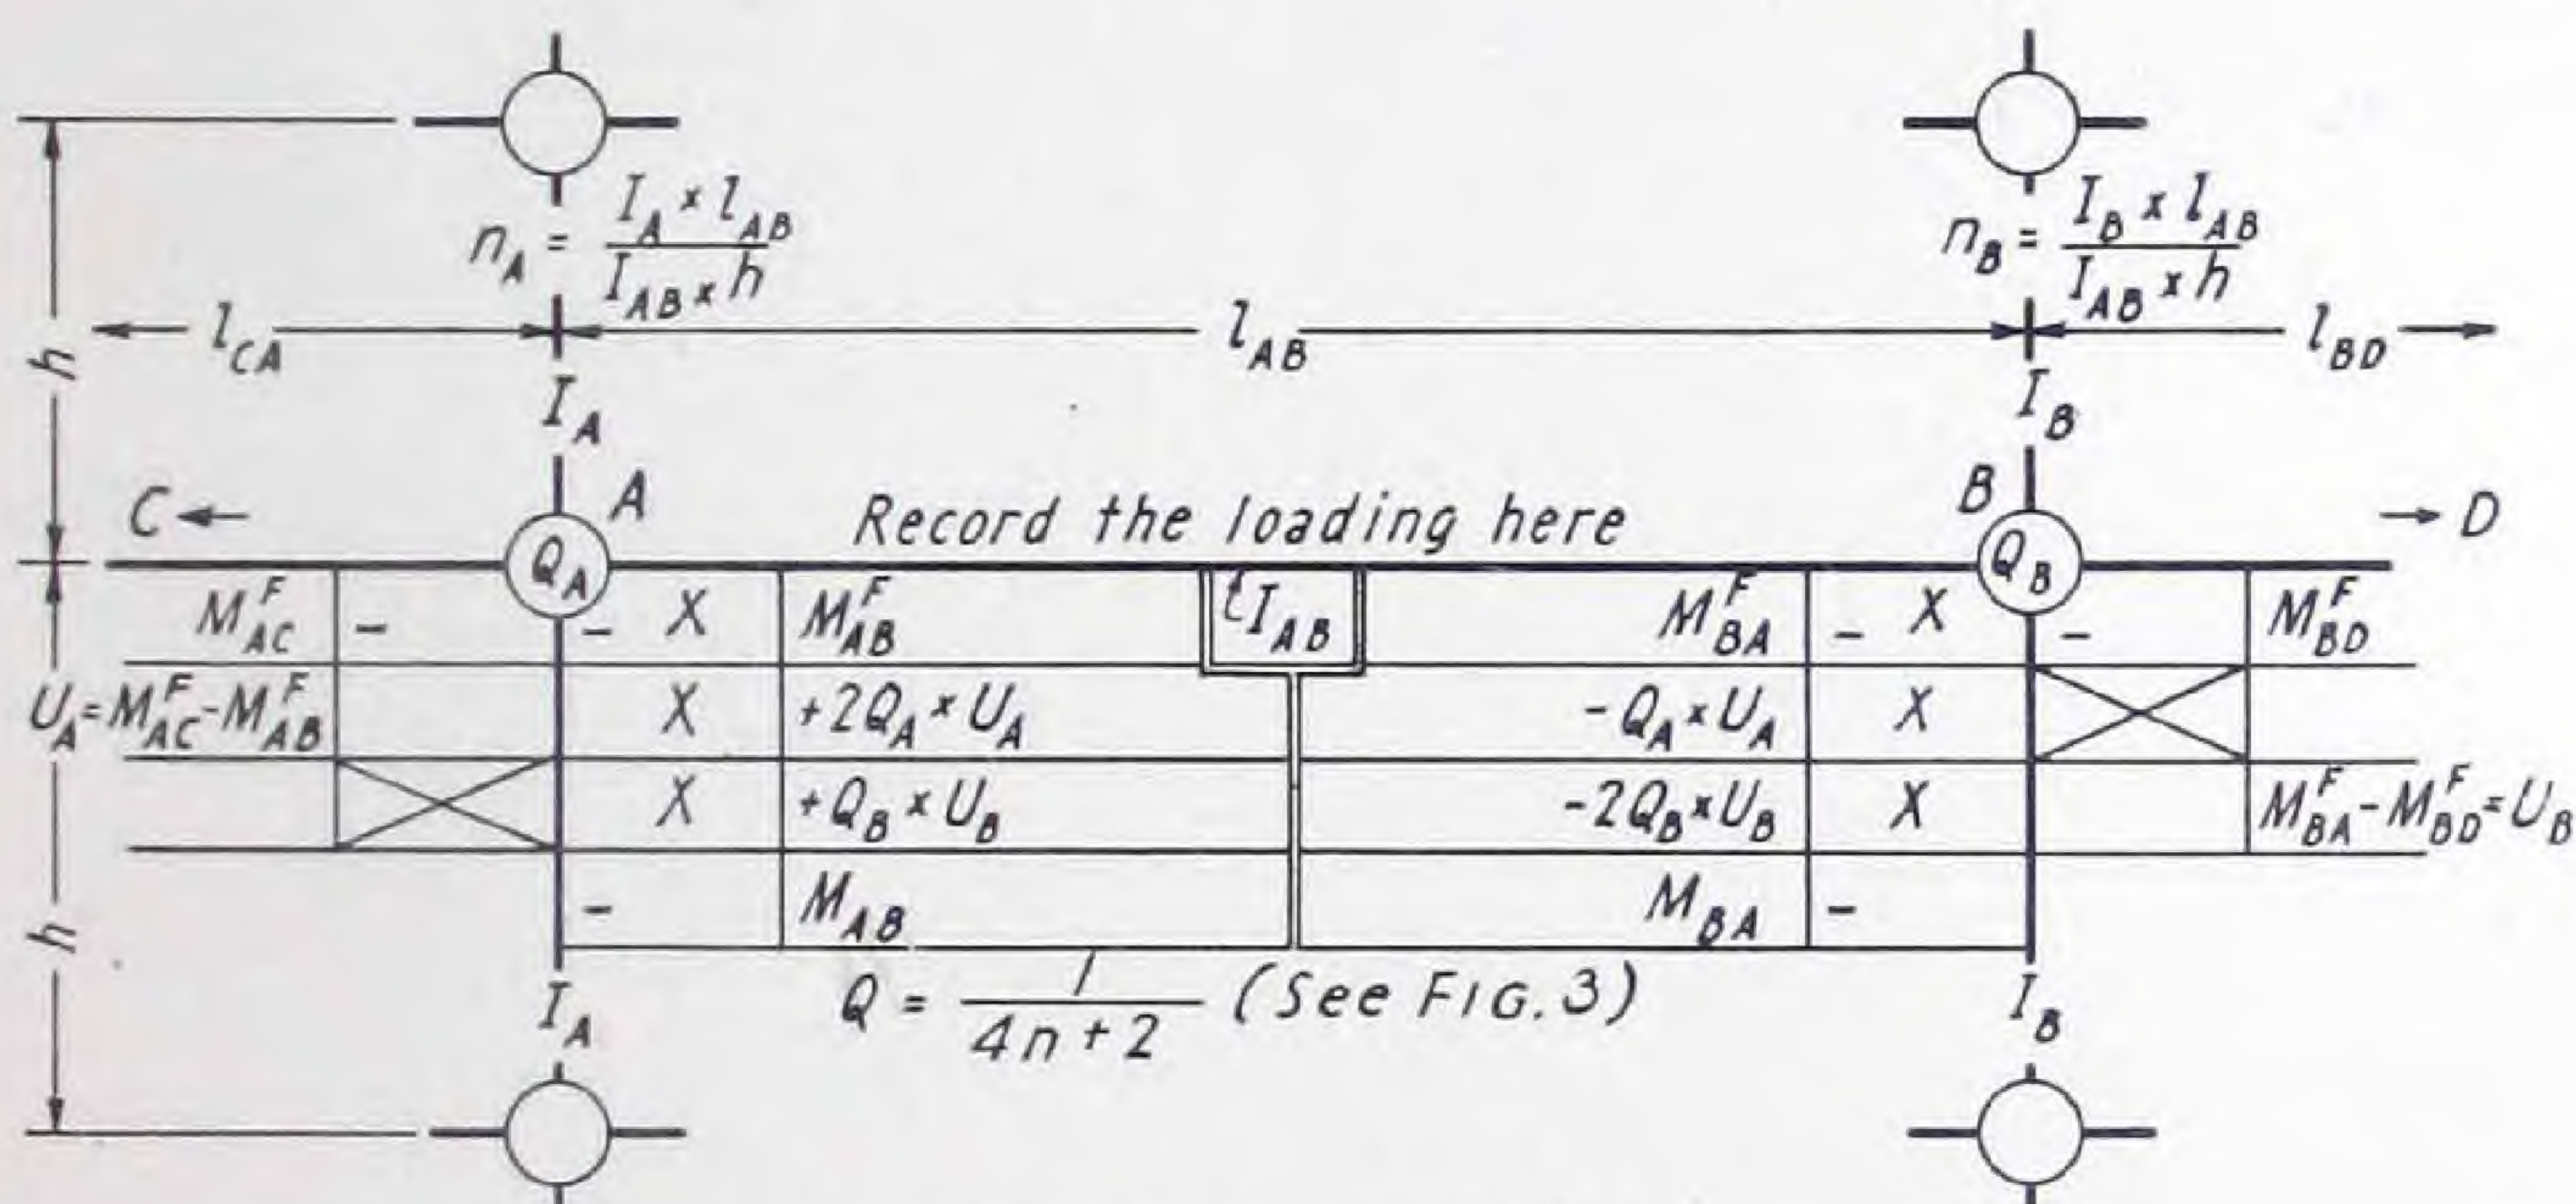 n_A = (I_A × l_AB) / (I_AB × h)
n_B = (I_B × l_AB) / (I_AB × h)
h
l_CA
l_AB
l_BD
I_A
I_B
C ←
A
Record the loading here
B
→ D
Q_A
Q_B
M^F_AC - - X M^F_AB
I_AB
M^F_BA - X - M^F_BD
U_A = M^F_AC - M^F_AB X +2Q_A × U_A
-Q_A × U_A X
X +Q_B × U_B
-2Q_B × U_B X M^F_BA - M^F_BD = U_B
- M_AB
M_BA -
h
I_A
Q = 1 / (4n + 2) (See FIG. 3)
I_B